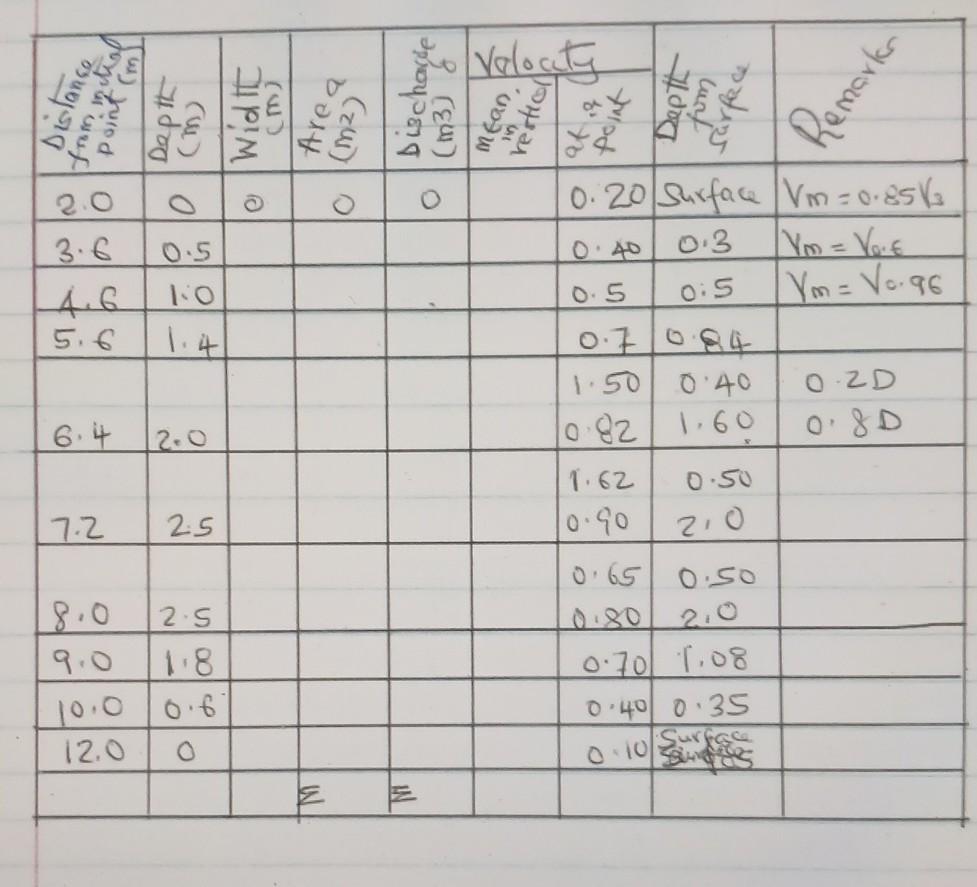 Distance from initial point (m) Depth (m) Width (m) Area (m2) Discharge (m3) Velocity Mean in vertical at a point Depth from surface Remarks
2.0 0 0 0 0 0.20 Surface Vm = 0.85Vs
3.6 0.5 0.40 0.3 Vm = V0.6
4.6 1.0 0.5 0.5 Vm = V0.96
5.6 1.4 0.7 0.84
1.50 0.40 0.2D
6.4 2.0 0.82 1.60 0.8D
1.62 0.50
7.2 2.5 0.90 2.0
0.65 0.50
8.0 2.5 0.80 2.0
9.0 1.8 0.70 1.08
10.0 0.6 0.40 0.35
12.0 0 0.10 Surface
Σ Σ